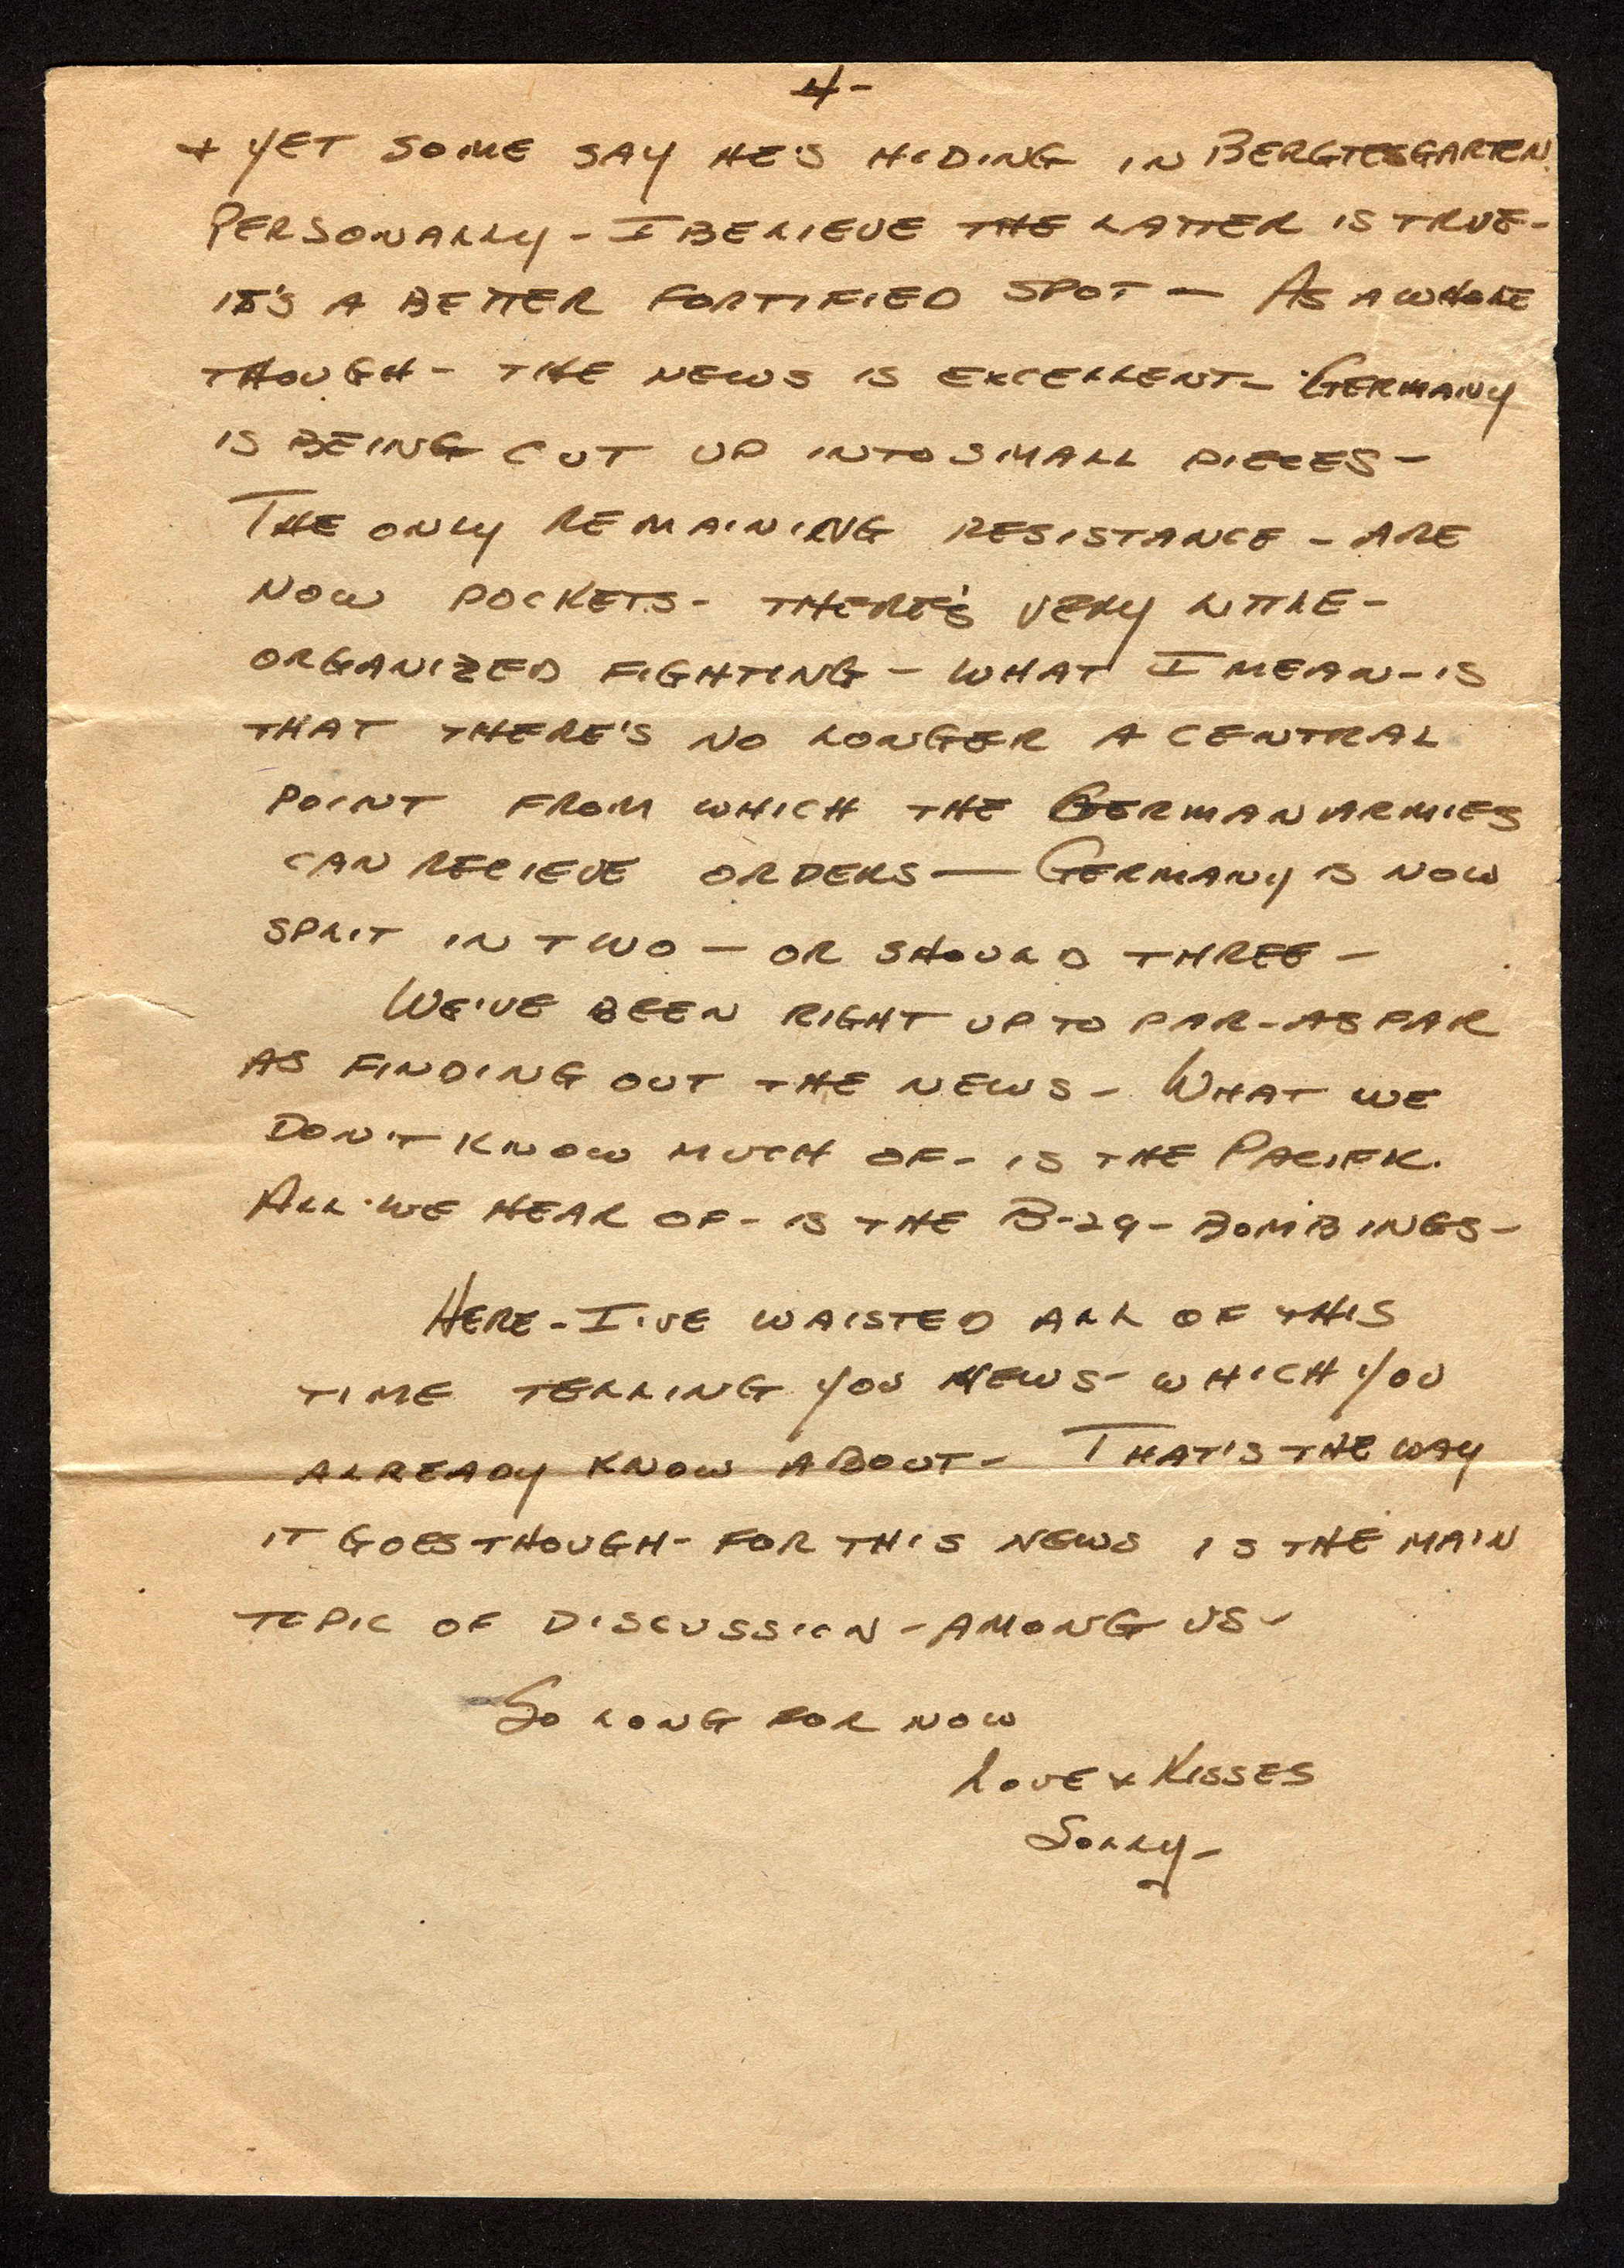 4-
+ YET SOME SAY HE'S HIDING IN BERGTESGARTEN.
PERSONALLY - I BELIEVE THE LATTER IS TRUE -
IT'S A BETTER FORTIFIED SPOT — AS A WHOLE
THOUGH - THE NEWS IS EXCELLENT - GERMANY
IS BEING CUT UP INTO SMALL PIECES -
THE ONLY REMAINING RESISTANCE - ARE
NOW POCKETS - THERE'S VERY LITTLE -
ORGANIZED FIGHTING - WHAT I MEAN - IS
THAT THERE'S NO LONGER A CENTRAL
POINT FROM WHICH THE GERMAN ARMIES
CAN RECIEVE ORDERS — GERMANY IS NOW
SPLIT IN TWO — OR SHOULD THREE -
WE'VE BEEN RIGHT UP TO PAR - AS FAR
AS FINDING OUT THE NEWS - WHAT WE
DON'T KNOW MUCH OF - IS THE PACIFIC.
ALL WE HEAR OF - IS THE B-29 - BOMBINGS -
HERE - I'VE WAISTED ALL OF THIS
TIME TELLING YOU NEWS - WHICH YOU
ALREADY KNOW ABOUT - THAT'S THE WAY
IT GOES THOUGH - FOR THIS NEWS IS THE MAIN
TOPIC OF DISCUSSION - AMONG US -
SO LONG FOR NOW
LOVE + KISSES
SOLLY -